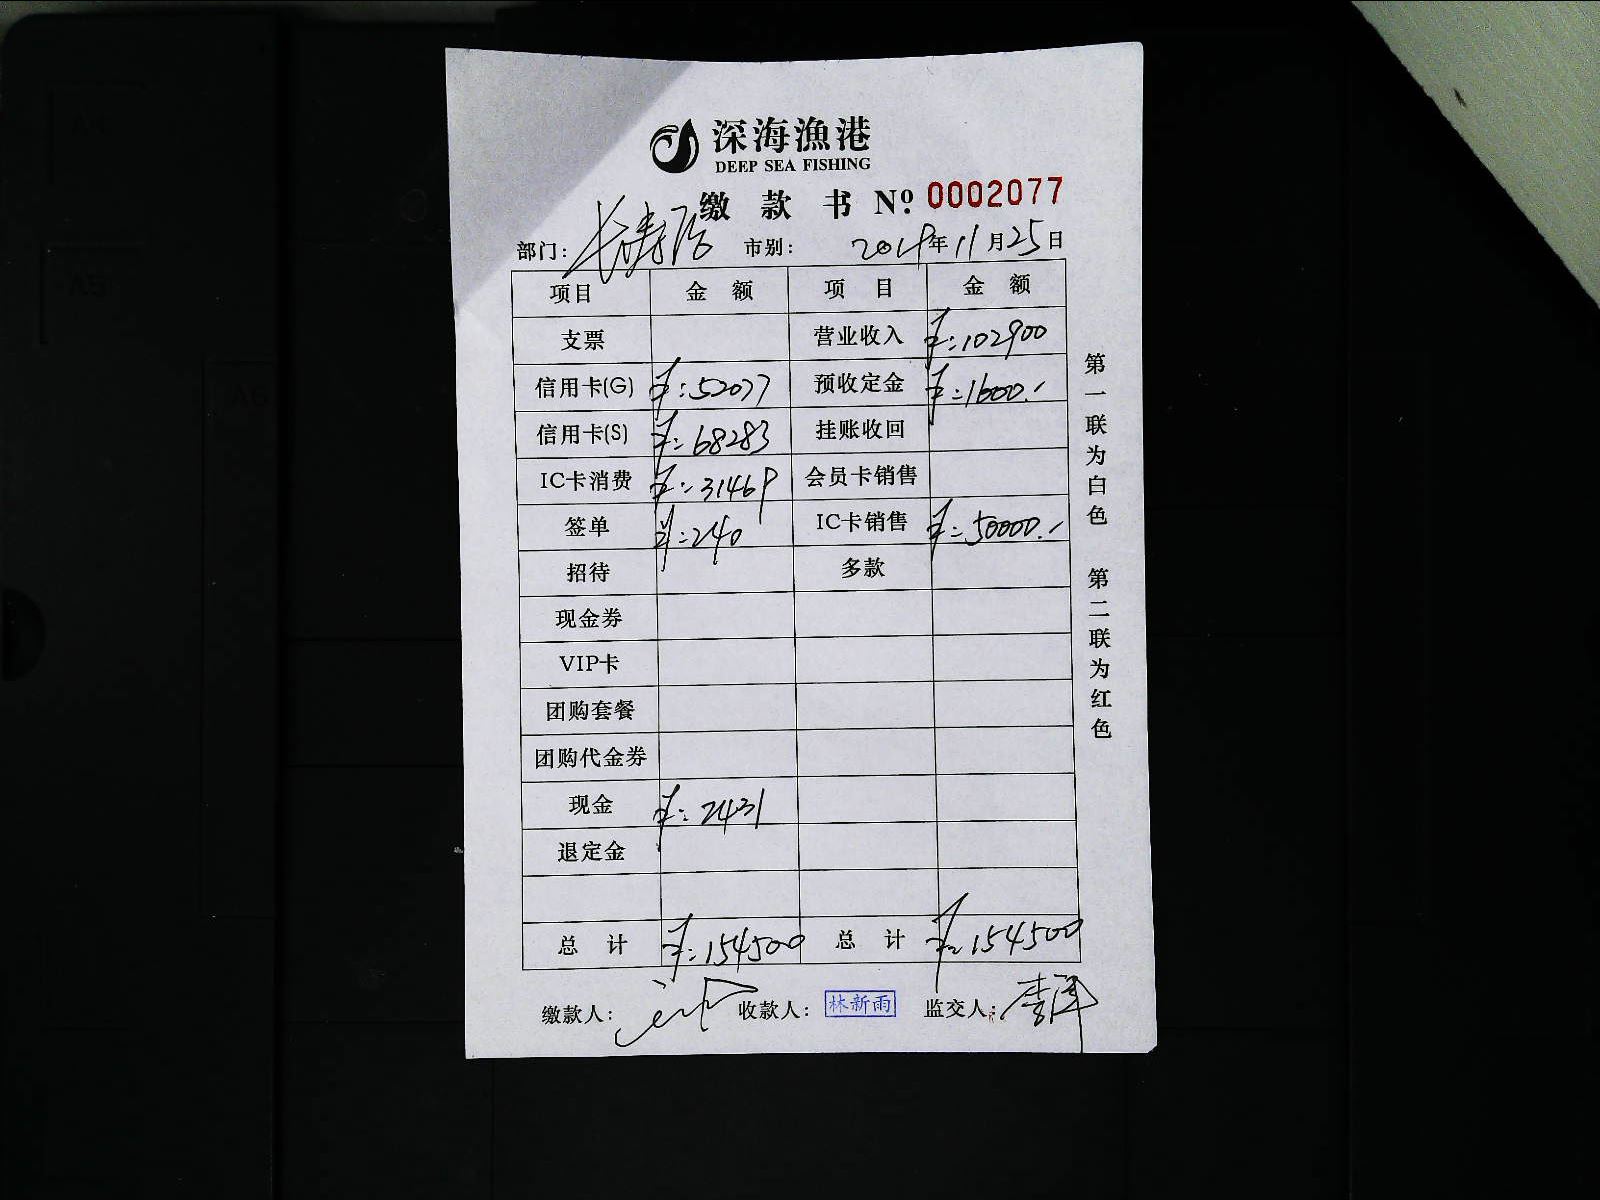 深海渔港
DEEP SEA FISHING
缴款书 Nº: 0002077
部门: 长寿 市别: 2019年11月25日
项目 金额 项目 金额
支票 营业收入 ¥:102900
信用卡(G) ¥:52077 预收定金 ¥:1600.-
信用卡(S) ¥:68283 挂账收回
IC卡消费 ¥:31469 会员卡销售
签单 ¥:240 IC卡销售 ¥:50000.-
招待 多款
现金券
VIP卡
团购套餐
团购代金券
现金 ¥:2431
退定金
总计 ¥:154500 总计 ¥:154500
缴款人: 收款人: 林新雨 监交人: 李
第一联为白色 第二联为红色